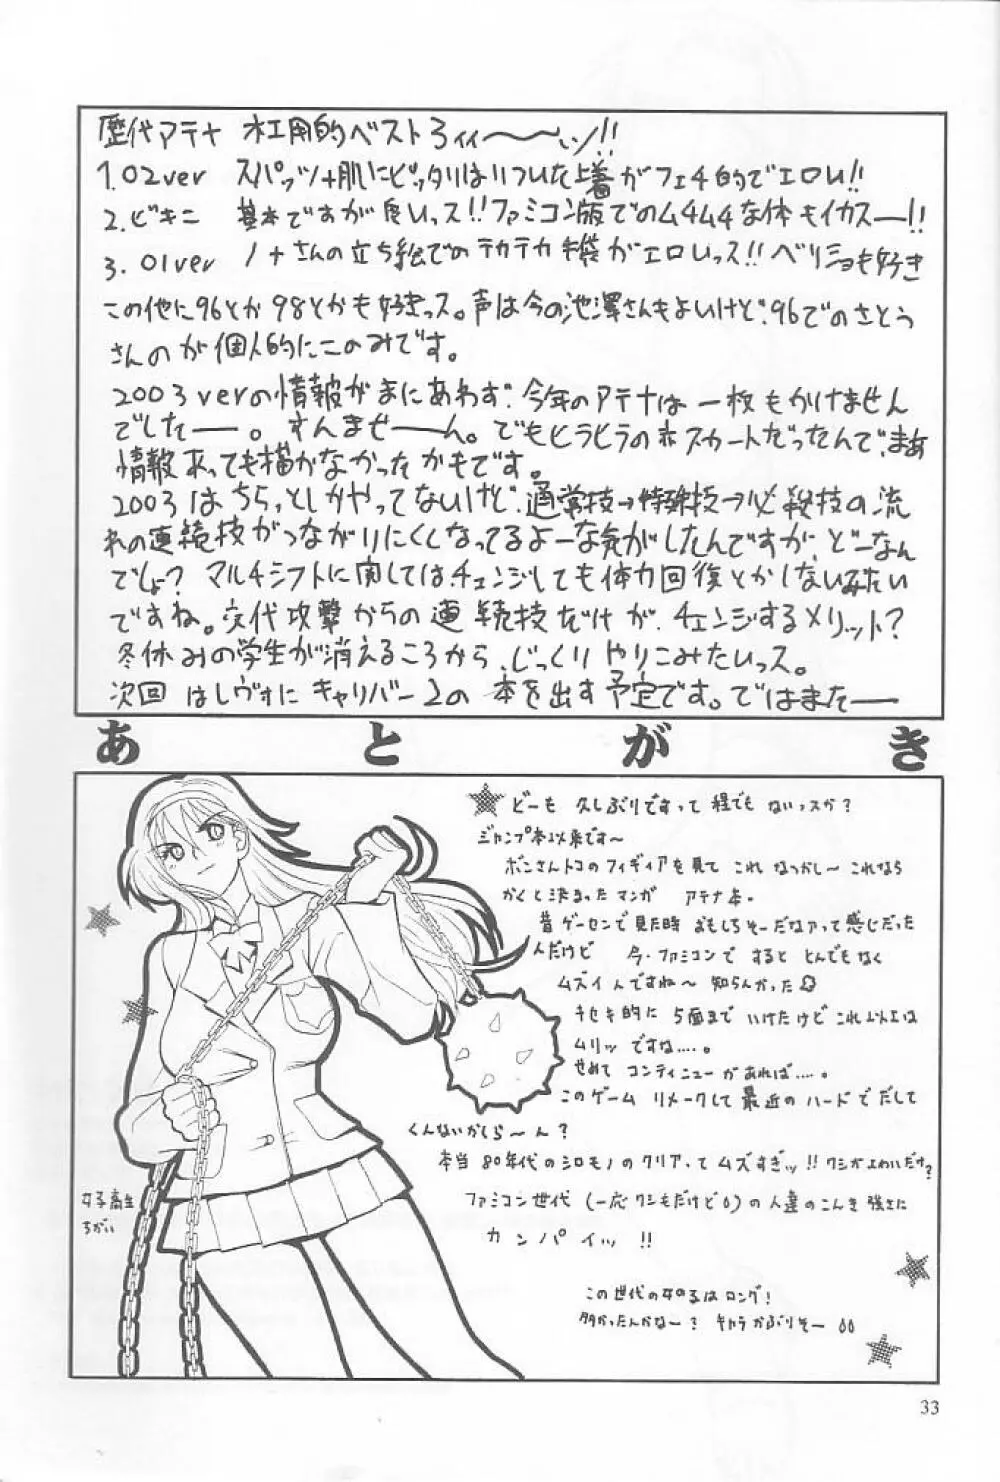 歴代アテナ 木工用的ベスト3ィィ〜〜ッ!!
1.02ver スパッツ+肌にピッタリはりついた上着がフェチ的でエロい!!
2.ビキニ 基本ですが良いっス!!ファミコン版でのムチムチな体もイカスー!!
3.01ver ノナさんの立ち絵でのテカテカ手袋がエロいっス!!ベリショも好き
この他に96とか98とかも好きっス。声は今の池澤さんもよいけど、96でのさとう
さんのが個人的にこのみです。
2003verの情報がまにあわず、今年のアテナは一枚もかけません
でしたー。すんませーん。でもヒラヒラの赤スカートだったんで、まあ
情報来っても描かなかったかもです。
2003はちらっとしかやってないけど、通常技→特殊技→必殺技の流
れの連続技がつながりにくくなってるよーな気がしたんですが、どーなん
でしょ?マルチシフトに関してはチェンジしても体力回復とかしないみたい
ですね。交代攻撃からの連続技だけが、チェンジするメリット?
冬休みの学生が消えるころから、じっくりやりこみたいっス。
次回はレヴォにキャリバー2の本を出す予定です。ではまたー
あとがき
どーも 久しぶりですって程でもないっスか?
ジャンプ本以来です〜
ボンさんトコのフィギィアを見て これ なつかし〜 これなら
かくと決まったマンガ アテナ本。
昔ゲーセンで見た時 おもしろそーだなァって感じだった
んだけど 今・ファミコンで すると とんでもなく
ムズイんですね〜 知らんかった
キセキ的に 5面まで いけたけど これ以上は
ムリッ ですね……。
せめて コンティニューがあれば……。
このゲーム リメークして最近の ハードで だして
くんないかしら〜ん?
本当 80年代のシロモノのクリアって ムズすぎッ!! ワシがよわいだけ?
ファミコン世代 (一応ワシもだけど) の 人達のこんき強さに
カンパイッ !!
女子高生
ちがい
この世代の女の子は ロング!
多かったんかなー? キャラかぶりそー
33